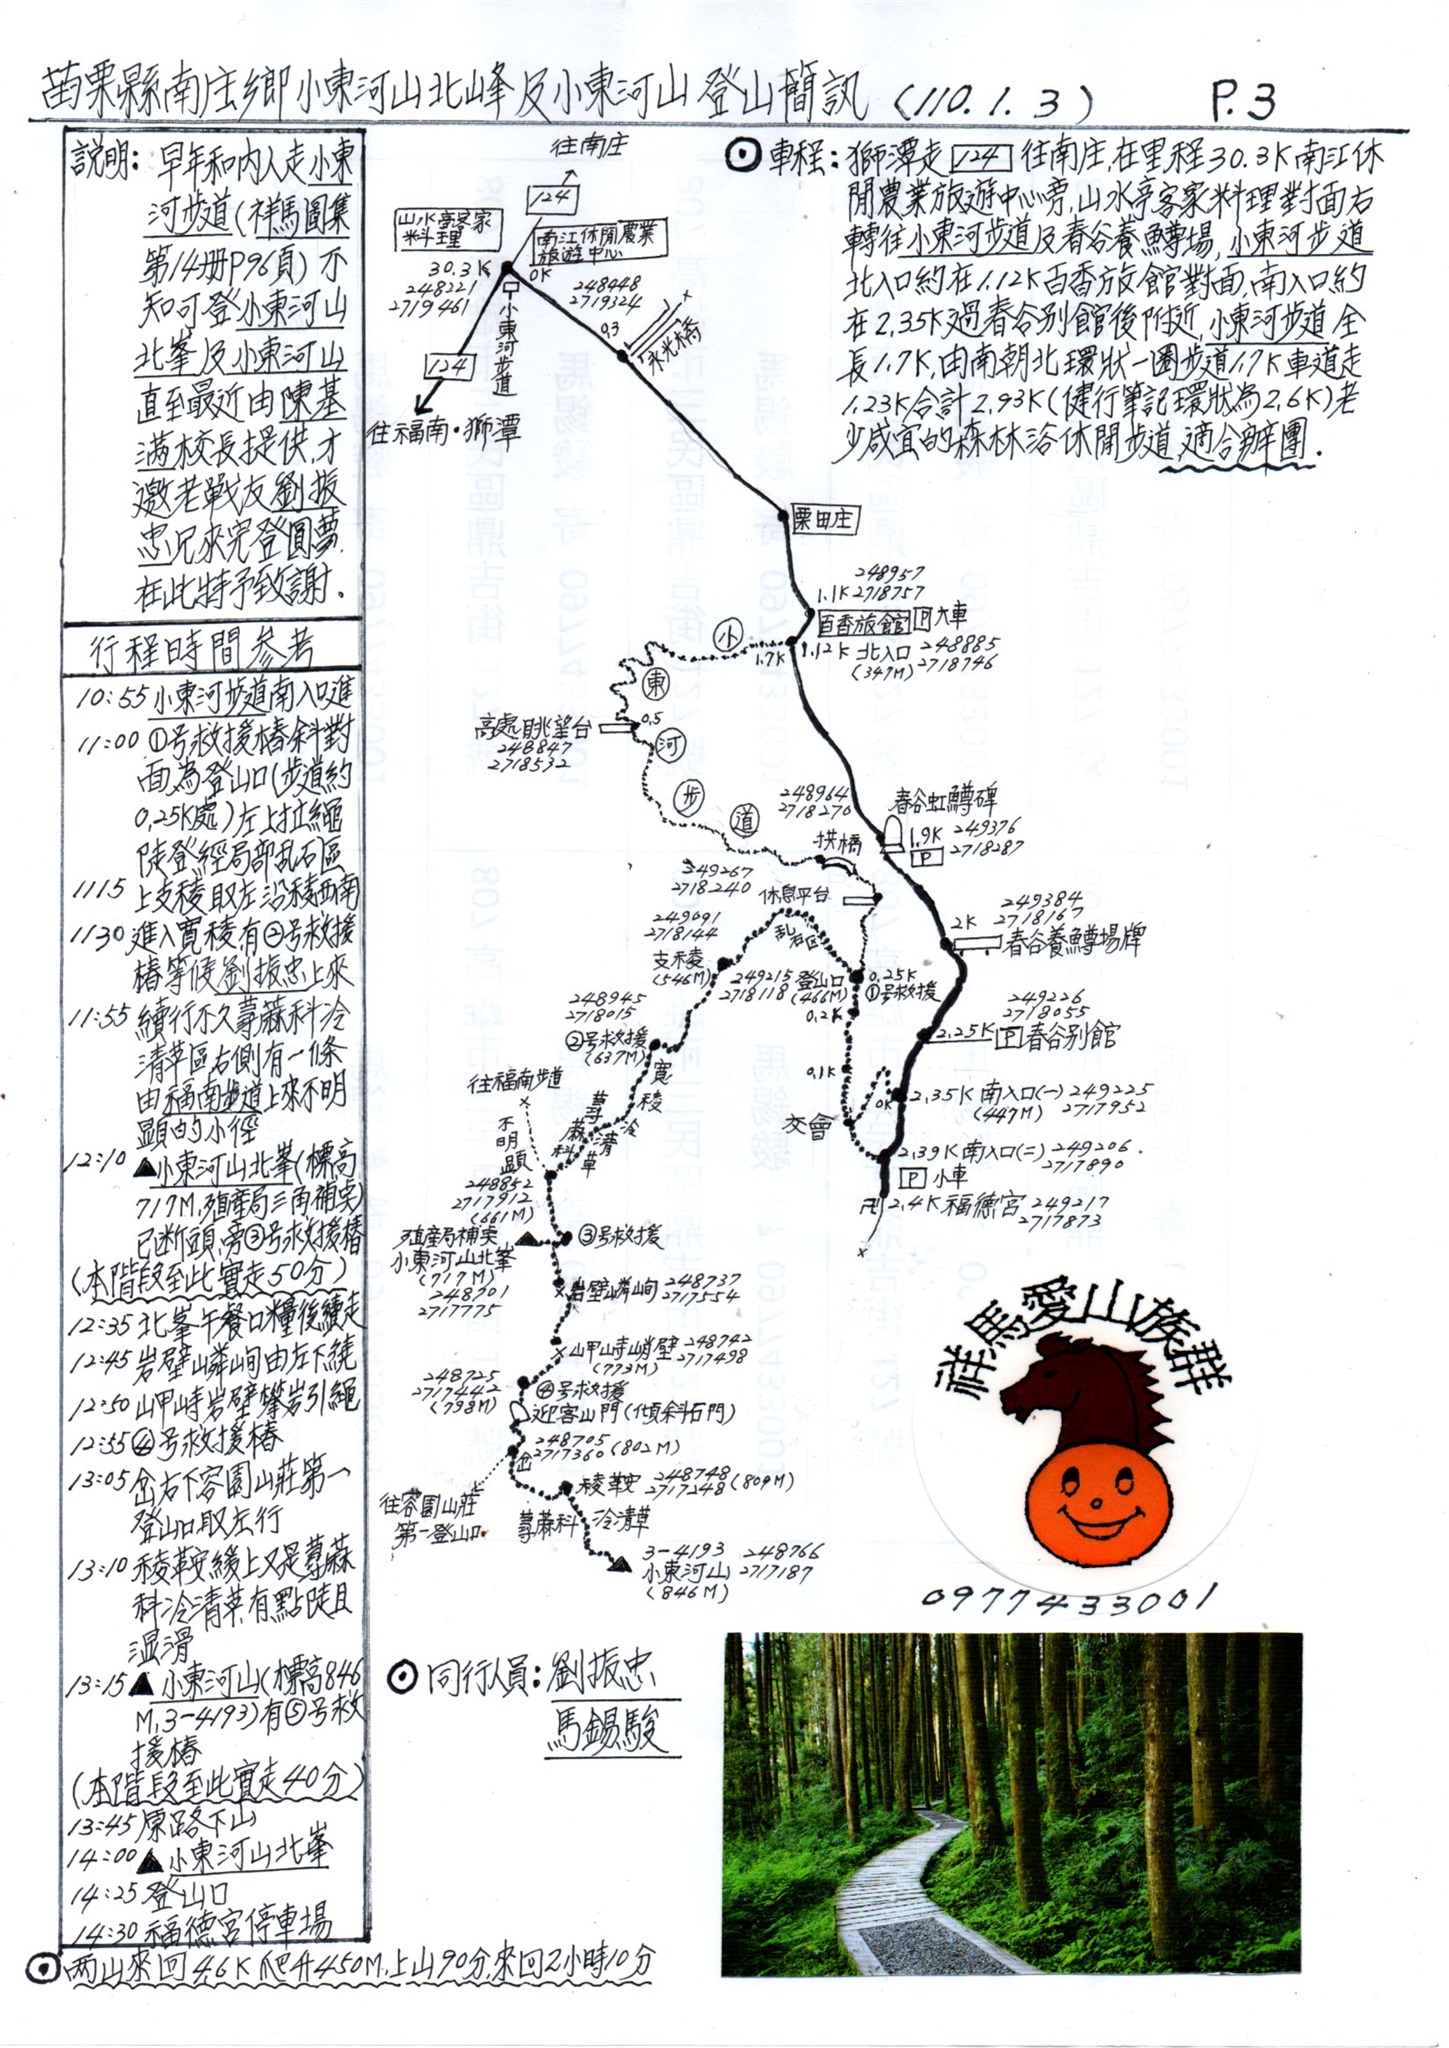 苗栗縣南庄鄉小東河山北峰及小東河山登山簡訊(110.1.3) P.3
說明: 早年和內人走小東
河步道(祥馬圖集
第14冊P96頁) 不
知可登小東河山
北峯及小東河山
直至最近由陳基
滿校長提供,才
邀老戰友劉振
忠兄來完登圓夢,
在此特予致謝.
行程時間參考
10:55 小東河步道南入口進
11:00 ①号救援樁斜對
面為登山口(步道約
0.25K處)左上拉繩
陡登經局部乱石區
1115 上支稜取左沿稜西南
1130 進入寬稜有②号救援
樁等候劉振忠上來
11:55 續行不久蕁蔴科冷
清草區右側有一條
由福南步道上來不明
顯的小徑
12:10 ▲小東河山北峯(標高
717M,殖產局三角補点)
已断頭,旁③号救援樁
(本階段至此實走50分)
12:35 北峯午餐口糧後續走
12:45 岩壁嶙峋由左下繞
12:50 山甲峙岩壁攀岩引繩
12:55 ④号救援樁
13:05 岔右下容園山莊第一
登山口取左行
13:10 稜鞍緩上又是蕁蔴
科冷清草,有點陡且
溼滑
13:15 ▲小東河山(標高846
M,3-4193)有⑤号救
援樁
(本階段至此實走40分)
13:45 原路下山
14:00 ▲小東河山北峯
14:25 登山口
14:30 福德宮停車場
⊙兩山來回4.6K爬升450M,上山90分,來回2小時10分
⊙車程: 獅潭走 124 往南庄,在里程30.3K南江休
閒農業旅遊中心旁,山水亭客家料理對面右
轉往小東河步道及春谷養鱒場,小東河步道
北入口約在1.12K百香旅館對面,南入口約
在2.35K過春谷別館後附近,小東河步道全
長1.7K,由南朝北環狀一圈步道1.7K車道走
1.23K合計2.93K(健行筆記環狀為2.6K)老
少咸宜的森林浴休閒步道,適合辦團.
往南庄
124
山水亭客家
料理
南江休閒農業
旅遊中心
30.3K
248221
2719461
0K
小東河步道
248448
2719324
0.3
永光橋
124
往福南·獅潭
栗田庄
248957
1.1K 2718757
百香旅館 回大車
1.7K
1.12K 北入口 248885
(347M) 2718746
小
東
河
步
道
0.5
高處眺望台
248847
2718532
248964
2718270
拱橋
春谷虹鱒碑
1.9K 249376
P 2718287
249267
2718240
休息平台
249384
2718167
2K
春谷養鱒場牌
249091
2718144
支稜
(546M)
乱石区
249215 登山口
2718118 (466M)
0.25K
①号救援
0.2K
0.1K
0K
交會
249226
2718055
2.25K P 春谷別館
2.35K 南入口(一) 249225
(447M) 2717952
2.39K 南入口(二) 249206
2717890
P 小車
卍 2.4K 福德宮 249217
2717873
248945
2718015
②号救援
(637M)
寬稜
蕁蔴科
冷清草
往福南步道
不明顯
248852
2717912
(661M)
殖產局補点
小東河山北峯
(717M)
248701
2717775
③号救援
岩壁嶙峋 248737
2717554
山甲峙峭壁 248742
(773M) 2717498
248725
2717442
(798M)
④号救援
迎客山門(傾斜石門)
248705
2717360 (802M)
岔
往容園山莊
第一登山口
稜鞍 248748
2717248 (809M)
蕁蔴科 冷清草
3-4193 248766
小東河山 2717187
(846M)
祥馬愛山族群
0977433001
⊙同行人員: 劉振忠
馬錫駿